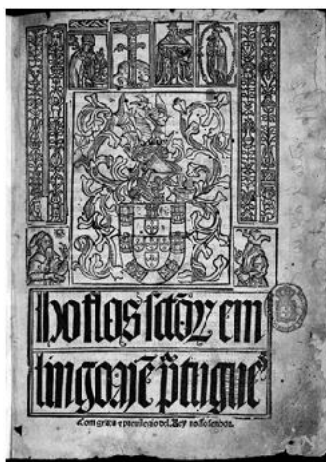 ho flos sctõꝝ em
lingoajē p̃tugueˢ
Com graça e preuilegio del Rey nosso senhor.